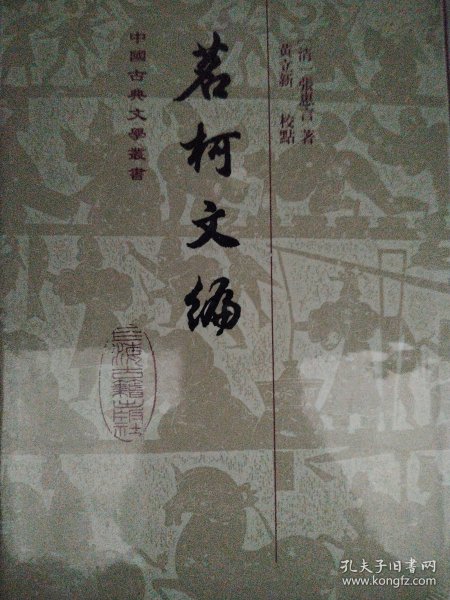 清 張惠言 著
黃立新 校點
茗柯文編
中國古典文學叢書
上海古籍出版社
孔夫子旧书网
www.kongfz.com